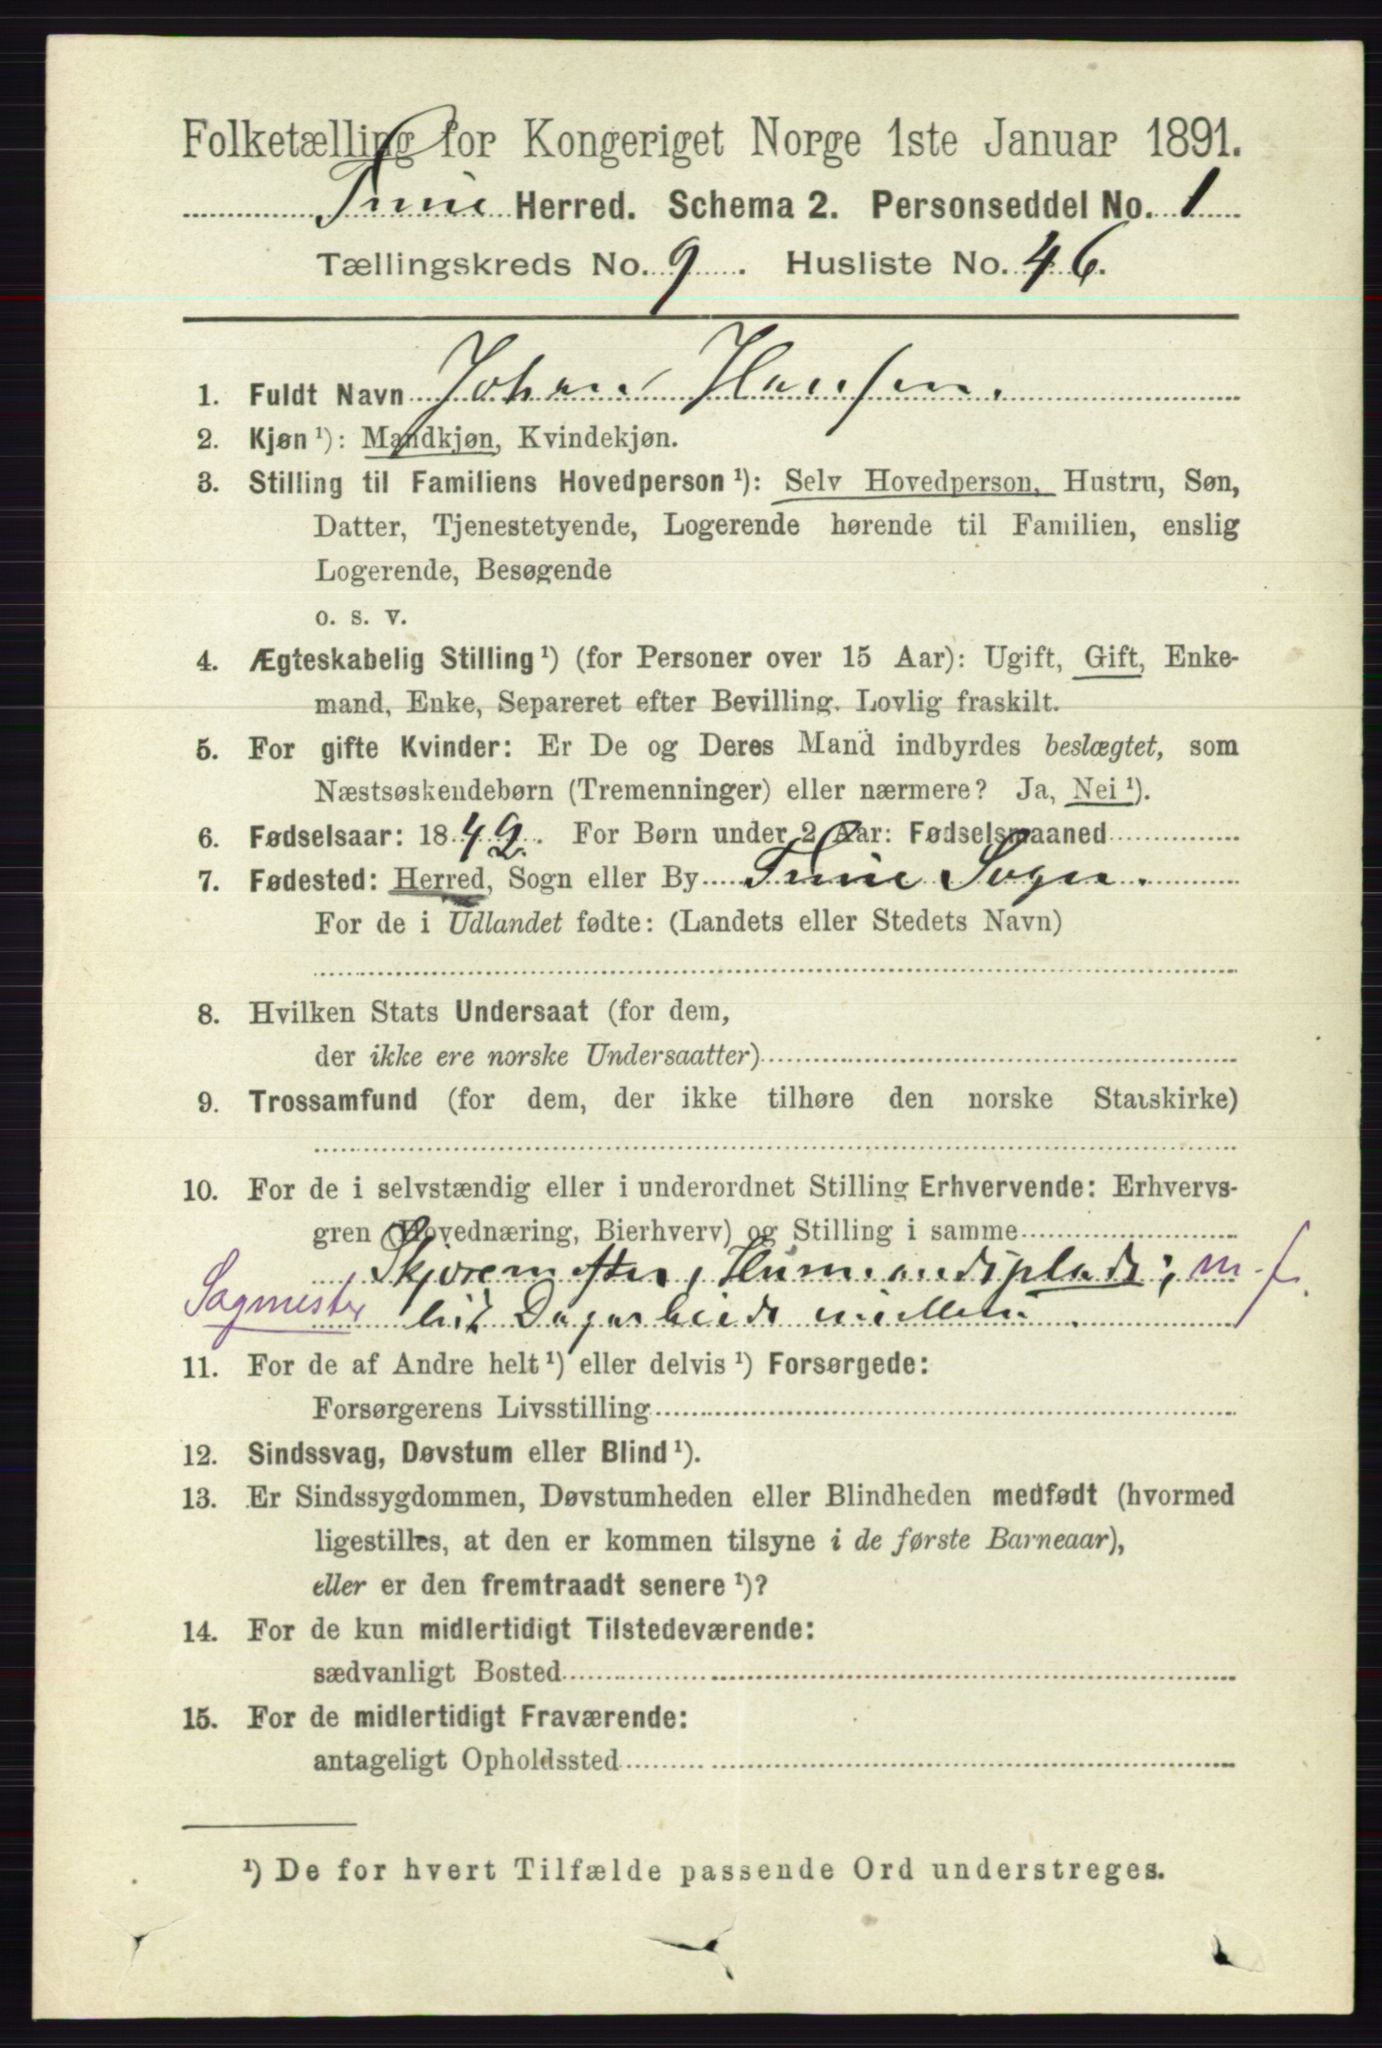 Folketælling for Kongeriget Norge 1ste Januar 1891.
Tune Herred. Schema 2. Personseddel No. 1
Tællingskreds No. 9. Husliste No. 46.
1. Fuldt Navn Johan Hansen.
2. Kjøn ¹): Mandkjøn, Kvindekjøn.
3. Stilling til Familiens Hovedperson ¹): Selv Hovedperson, Hustru, Søn,
Datter, Tjenestetyende, Logerende hørende til Familien, enslig
Logerende, Besøgende
o. s. v.
4. Ægteskabelig Stilling ¹) (for Personer over 15 Aar): Ugift, Gift, Enke-
mand, Enke, Separeret efter Bevilling. Lovlig fraskilt.
5. For gifte Kvinder: Er De og Deres Mand indbyrdes beslægtet, som
Næstsøskendebørn (Tremenninger) eller nærmere? Ja, Nei ¹).
6. Fødselsaar: 1849. For Børn under 2 Aar: Fødselsmaaned
7. Fødested: Herred, Sogn eller By Tune Sogn.
For de i Udlandet fødte: (Landets eller Stedets Navn)
8. Hvilken Stats Undersaat (for dem,
der ikke ere norske Undersaatter)
9. Trossamfund (for dem, der ikke tilhøre den norske Statskirke)
10. For de i selvstændig eller i underordnet Stilling Erhvervende: Erhvervs-
gren (Hovednæring, Bierhverv) og Stilling i samme
Skjæremester, Husmandsplads; m.f.
Sagmester lidt Dagarbeide
11. For de af Andre helt ¹) eller delvis ¹) Forsørgede:
Forsørgerens Livsstilling
12. Sindssvag, Døvstum eller Blind ¹).
13. Er Sindssygdommen, Døvstumheden eller Blindheden medfødt (hvormed
ligestilles, at den er kommen tilsyne i de første Barneaar),
eller er den fremtraadt senere ¹)?
14. For de kun midlertidigt Tilstedeværende:
sædvanligt Bosted
15. For de midlertidigt Fraværende:
antageligt Opholdssted
¹) De for hvert Tilfælde passende Ord understreges.